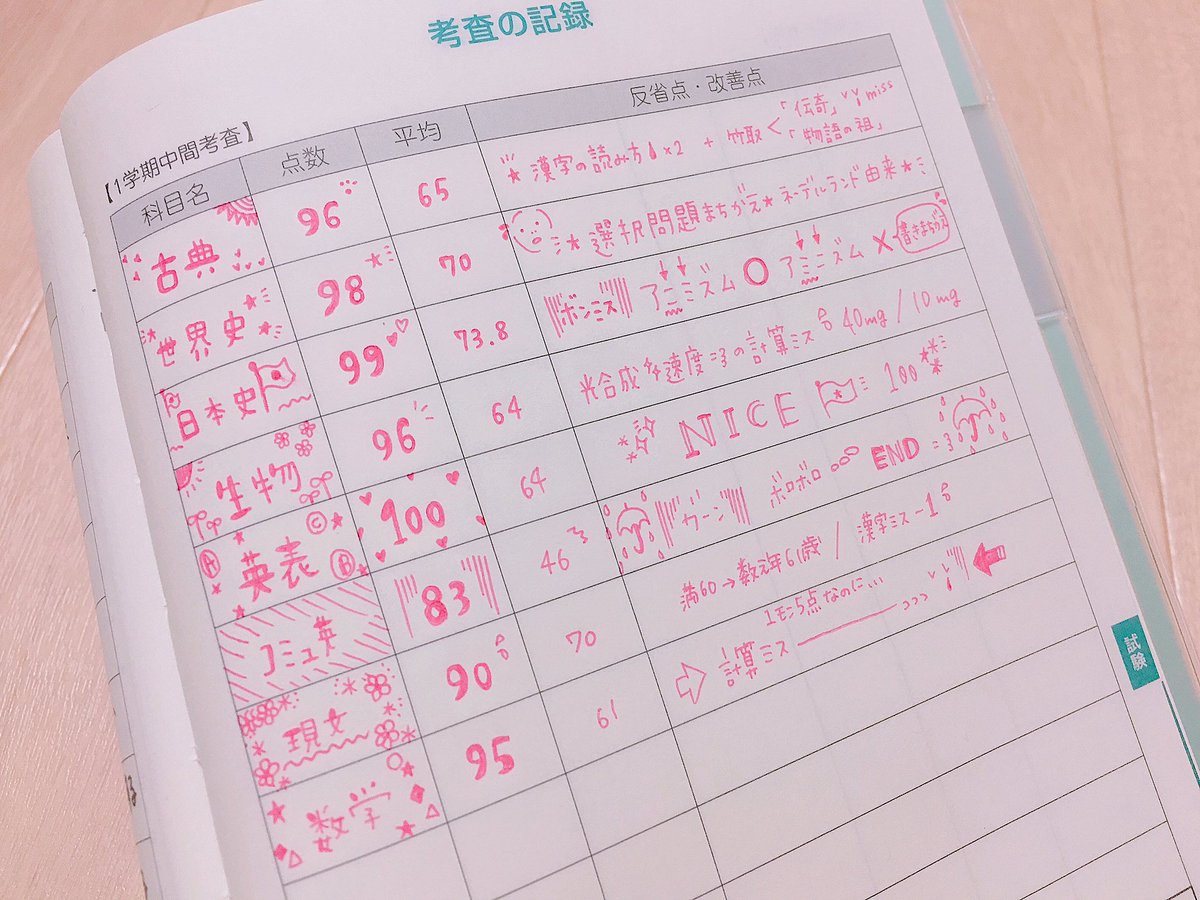 考査の記録
【1学期中間考査】
科目名 点数 平均 反省点・改善点
古典 96 65 漢字の読み方 ×2 + 竹取 < 「伝奇」 miss
「物語の祖」
世界史 98 70 選択問題まちがえ★ネーデルランド由来★
日本史 99 73.8 ボンミス アニミズム○ アミニズム× 書きまちがえ
生物 96 64 光合成 速度 の計算ミス 40mg / 10mg
A 英表 B C 100 64 NICE 100
コミュ英 83 46 ガーン ボロボロ END
現文 90 70 満60→数え年61歳 / 漢字ミス -1
数学 95 61 ⇨ 計算ミス 1モン5点なのに...
試験